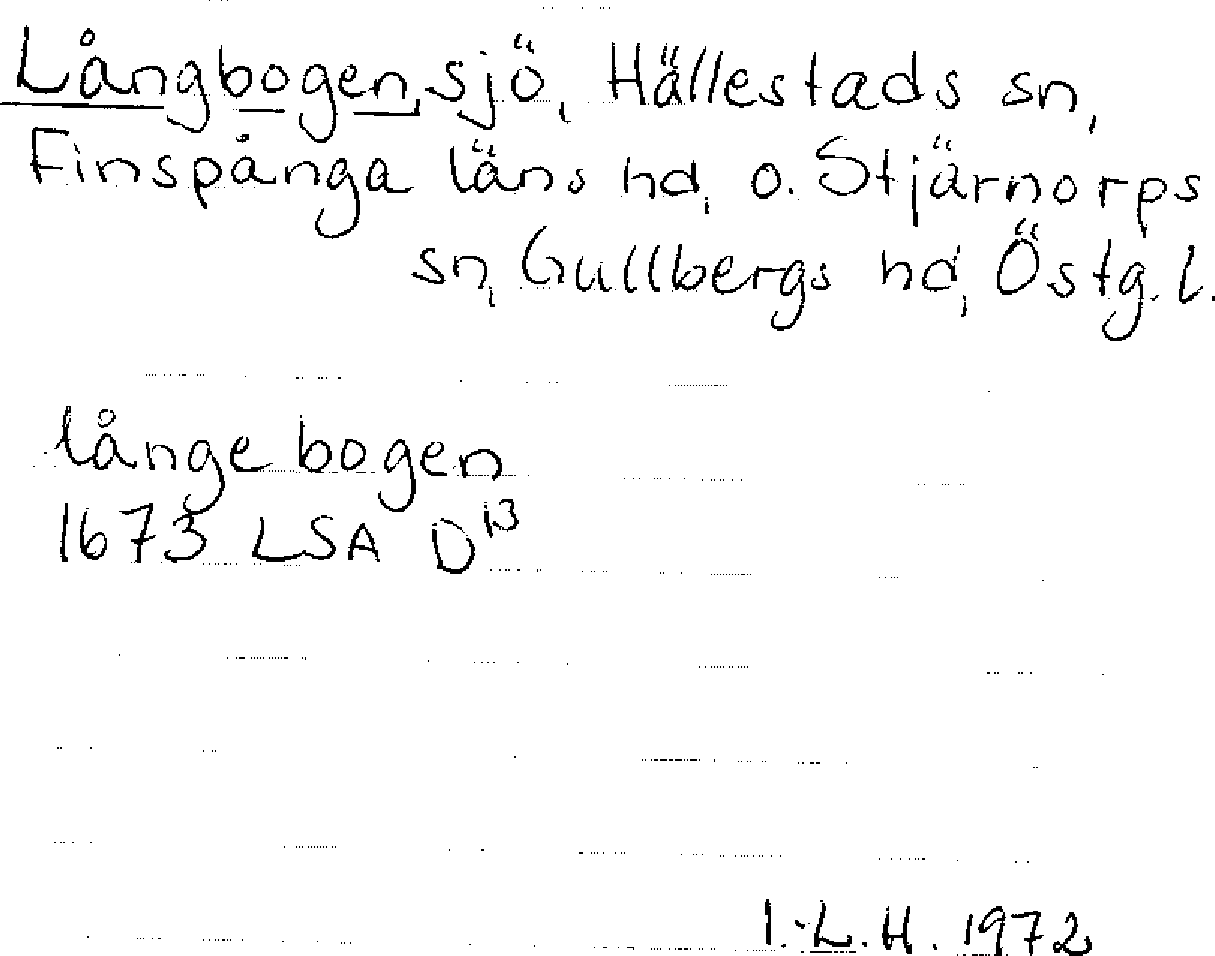 Långbogen, sjö, Hällestads sn,
Finspånga läns hd, o. Stjärnorps
sn, Gullbergs hd, Östg. l.
långe bogen
1673 LSA D13
I.-L.H. 1972